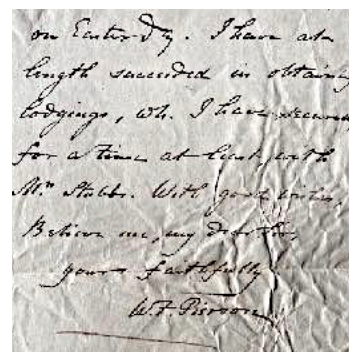 on Easter Dy. I have at
length succeeded in obtaining
lodgings, wh. I have secured
for a time at least, with
Mrs Stubbs. With good wishes,
Believe me, my dear Sir,
yours faithfully
W.F. Pierson